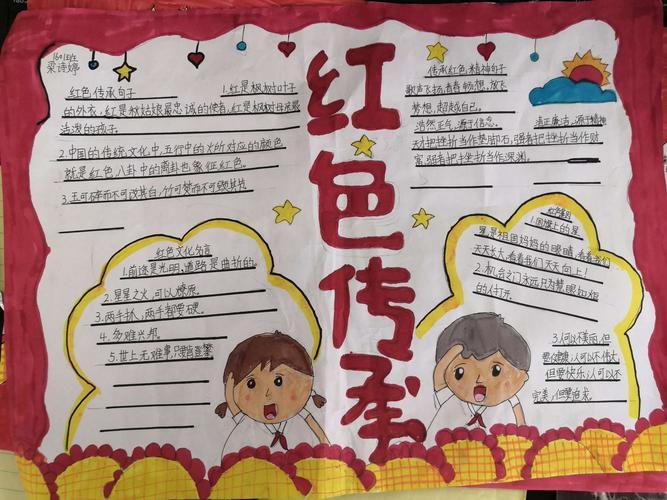 梁诗婷
红色传承
红色,传承句子
1.红是枫树对叶子
的外衣,红是秋姑娘最忠诚的使者,红是枫树母亲最
活泼的孩子。
2.中国的传统文化中,五行中的火所对应的颜色
就是红色,八卦中的离卦也象征红色。
3.玉可碎而不可改其白,竹可焚而不可毁其节
传承红色,精神句子
歌声飞扬,青春畅想,放飞
梦想,超越自己。
浩然正气,源于信念。
清正廉洁,源于精神
天才把挫折当作垫脚石,强者把挫折当作财
富,弱者把挫折当作深渊。
红色文化名言
1.前途是光明,道路是曲折的。
2.星星之火,可以燎原
3.两手抓,两手都要硬。
4.多难兴邦。
5.世上无难事,只要肯登攀
1.国旗上的星
星是祖国妈妈的眼睛,看着我们
天天长大,看着我们天天向上!
2.机会之门永远只为慧眼如炬
的人打开。
3.人可以不美丽,但
要健康,人可以不伟大,
但要快乐,人可以不
完美,但要追求。